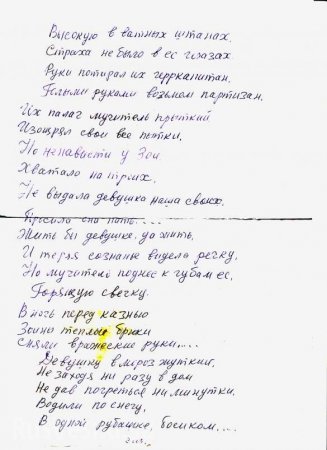 Высокую в ватных штанах.
Страха не было в её глазах.
Руки потирал их герр капитан.
Голыми руками возьмём партизан.
Их палач мучитель прыткий
Изощрял свои все пытки,
Но ненависти у Зои
Хватало на троих.
Не выдала девушка наша своих.
Просила она пить....
Жить бы девушке, да жить,
И теряя сознанье видела речку,
Но мучитель поднёс к губам её,
Горящую свечку.
В ночь перед казнью
Зоины тёплые брюки
Сняли вражеские руки....
Девушку в мороз жуткий,
Не заходя ни разу в дом
Не дав погреться ни минутки,
Водили по снегу,
В одной рубашке, босиком....